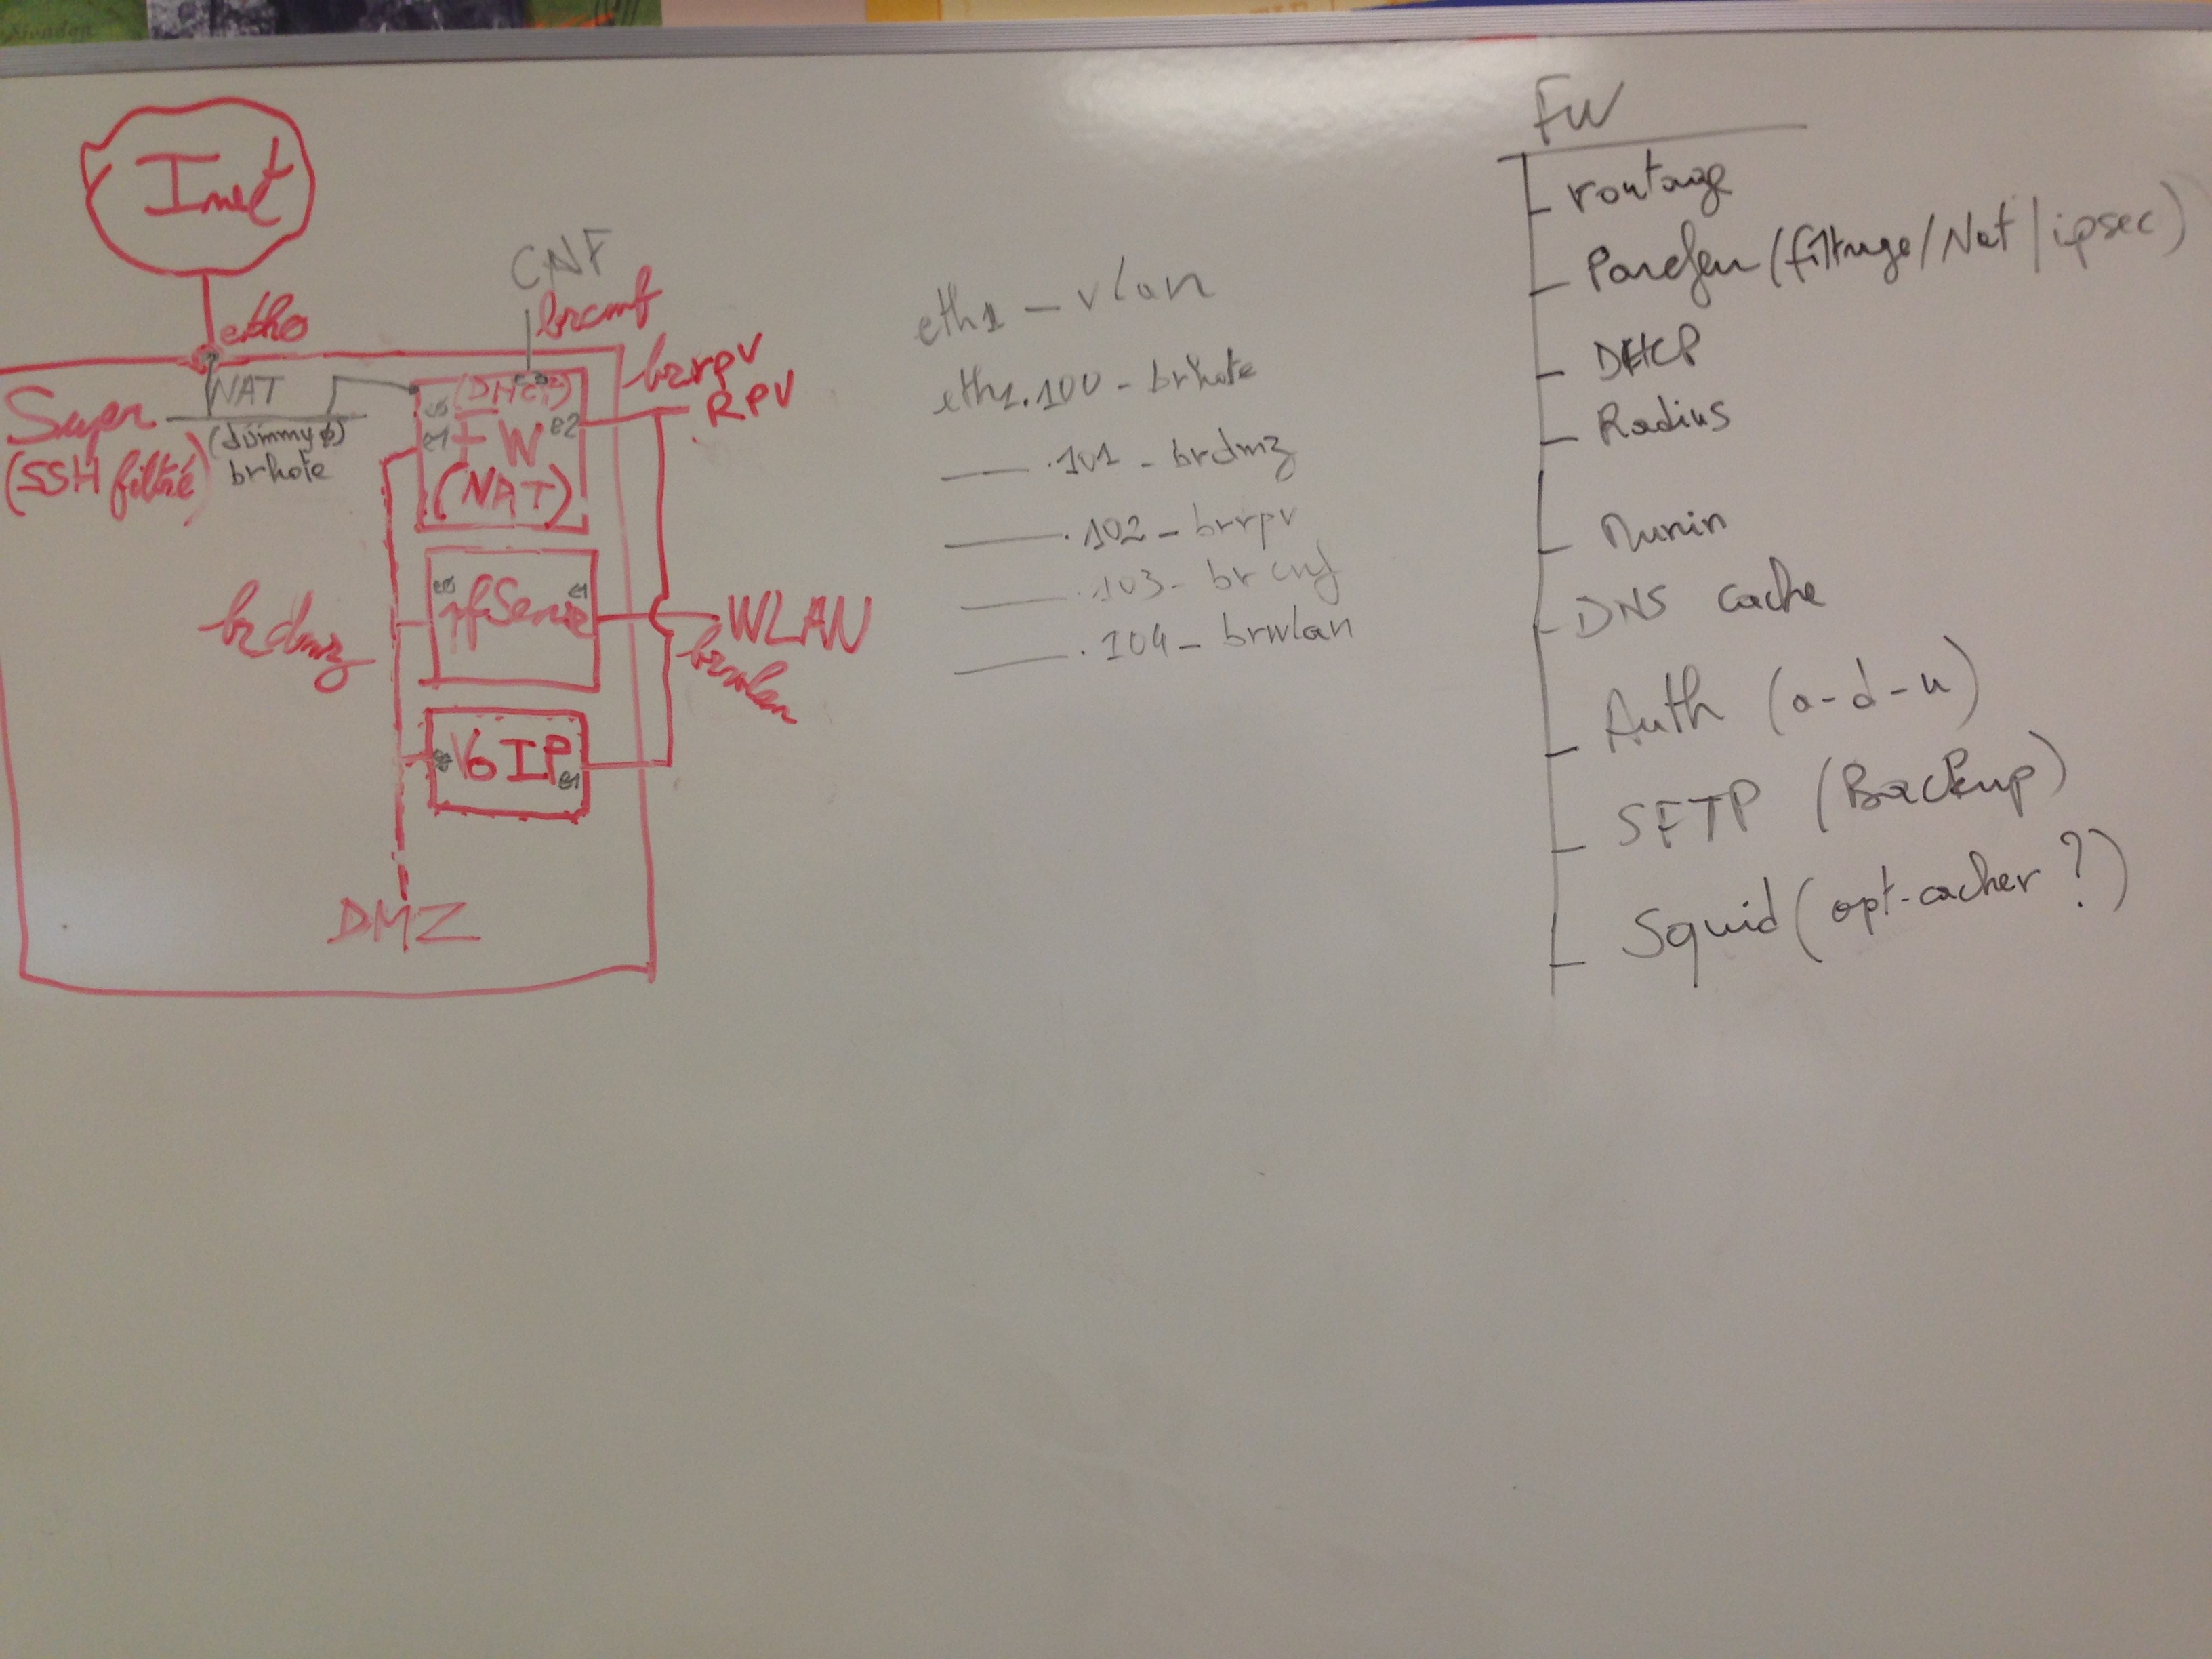 Inet
eth0
CNF
brcnf
brrpv
RPV
Super
(SSH filtré)
NAT
(dummy0)
brhote
(DHCP)
e0
e3
e1
FW
e2
(NAT)
brdmz
e0
pfSense
e1
WLAN
brwlan
e0
VoIP
e1
DMZ
eth1 - vlan
eth1.100 - brhote
.101 - brdmz
.102 - brrpv
.103 - brcnf
.104 - brwlan
FW
routage
Parefeu (filtrage/Nat/ipsec)
DHCP
Radius
Munin
DNS cache
Auth (a-d-u)
SFTP (Backup)
Squid (apt-cacher ?)